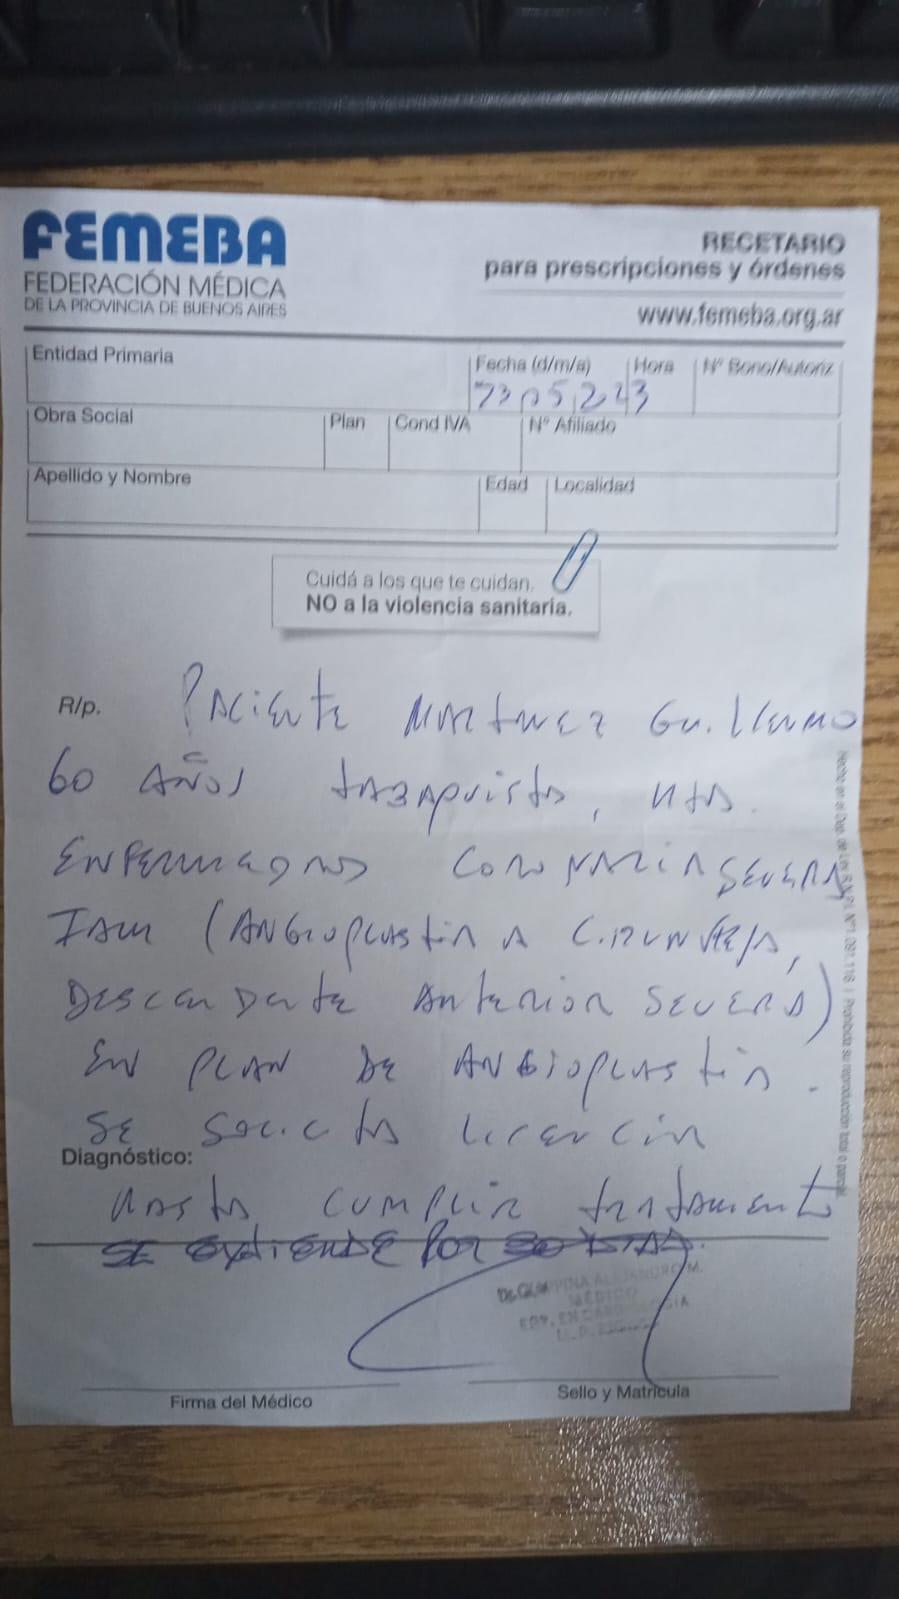 FEMEBA
FEDERACIÓN MÉDICA
DE LA PROVINCIA DE BUENOS AIRES
RECETARIO
para prescripciones y órdenes
www.femeba.org.ar
Entidad Primaria
Fecha (d/m/a) Hora Nº Bono/Autoriz
Obra Social Plan Cond IVA Nº Afiliado
Apellido y Nombre Edad Localidad
Cuidá a los que te cuidan.
NO a la violencia sanitaria.
R/p. Paciente Martinez Guillermo
60 años tabaquista, HTA.
Enfermedad coronaria severa
IAM (Angioplastia a circunfleja,
descendente anterior severa)
en plan de angioplastia.
Se solicita licencia
Diagnóstico:
hasta cumplir tratamiento
se extiende por 30 dias.
MÉDICO
Firma del Médico
Sello y Matrícula
Prohibida su reproducción total o parcial